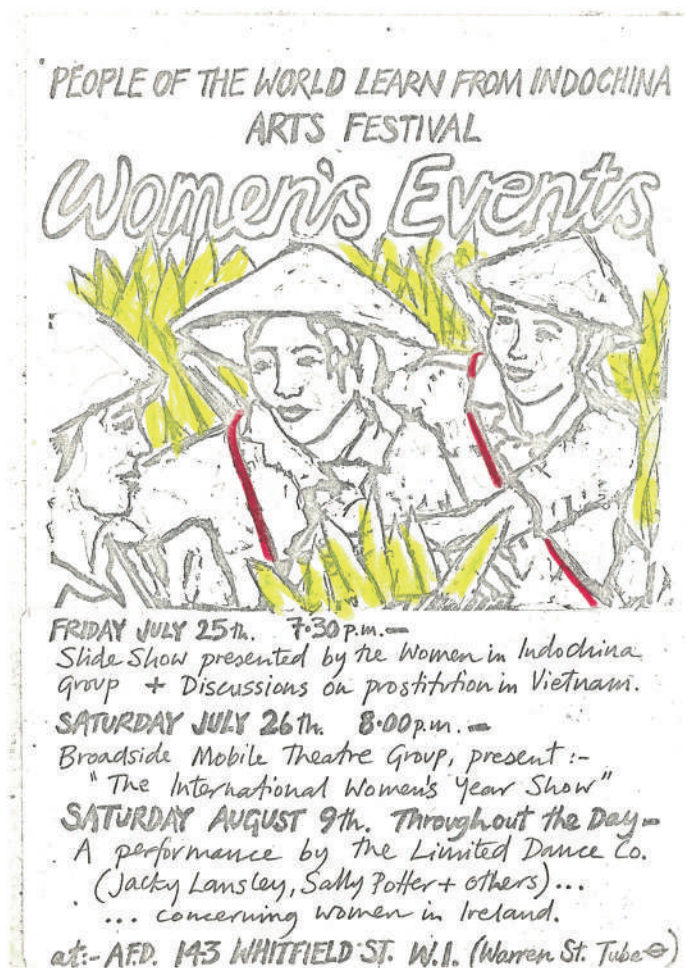 PEOPLE OF THE WORLD LEARN FROM INDOCHINA
ARTS FESTIVAL
Women's Events
FRIDAY JULY 25th. 7·30 p.m.—
Slide Show presented by the Women in Indochina
Group + Discussions on prostitution in Vietnam.
SATURDAY JULY 26th. 8·00p.m.—
Broadside Mobile Theatre Group, present:-
"The International Women's Year Show"
SATURDAY AUGUST 9th. Throughout the Day—
A performance by the Limited Dance Co.
(Jacky Lansley, Sally Potter + others)...
... concerning women in Ireland.
at:- A.F.D. 143 WHITFIELD ST. W.1. (Warren St. Tube)